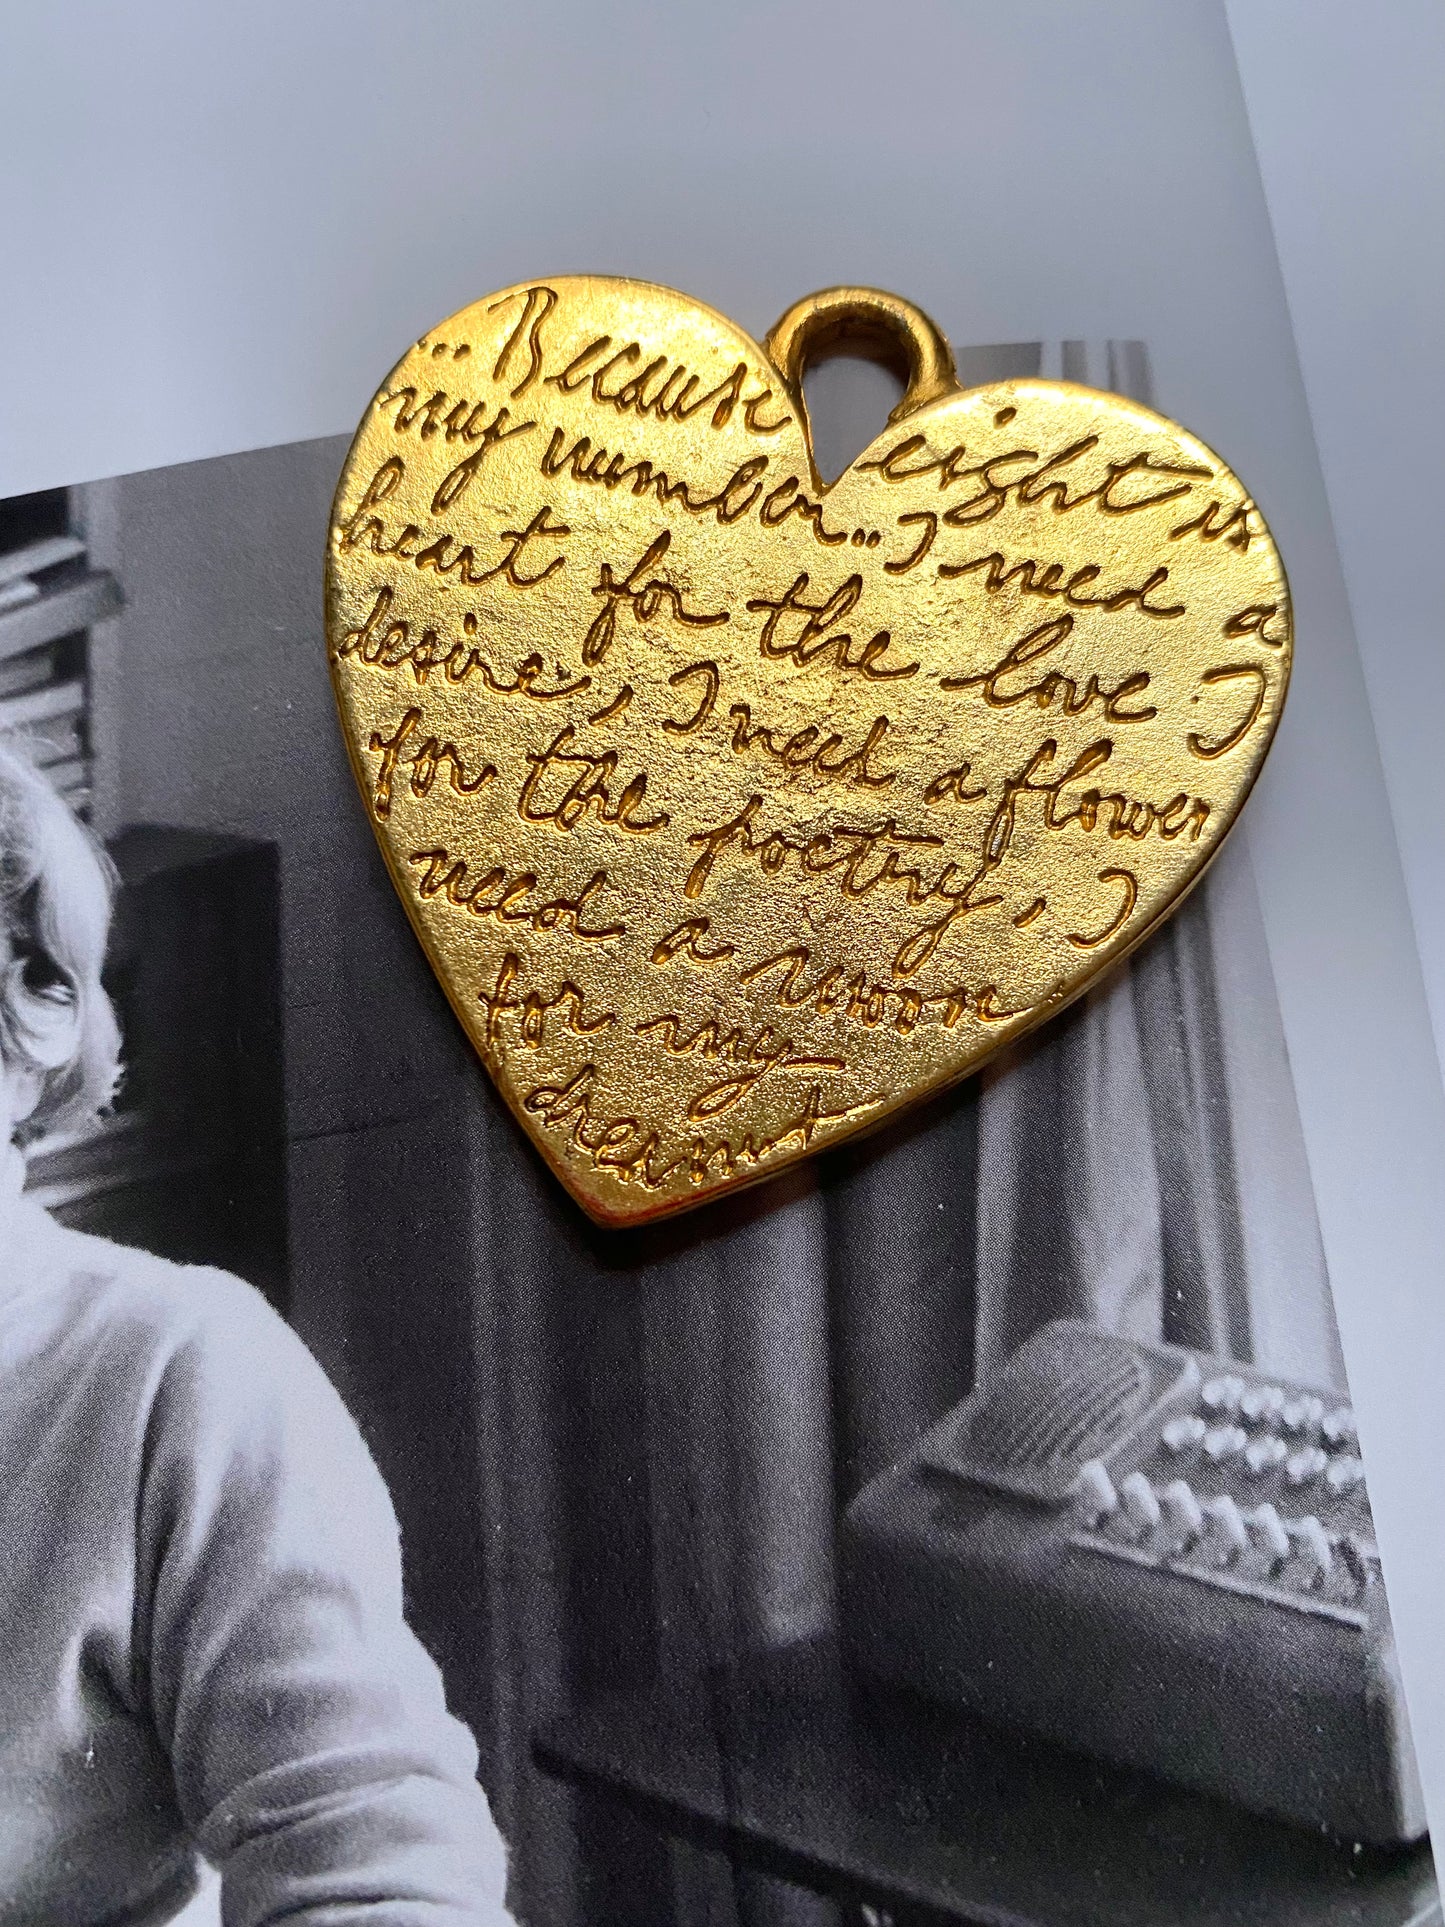 ...Because eight is
my number... I need a
heart for the love I
desire, I need a flower
for the poetry, I
need a moon
for my